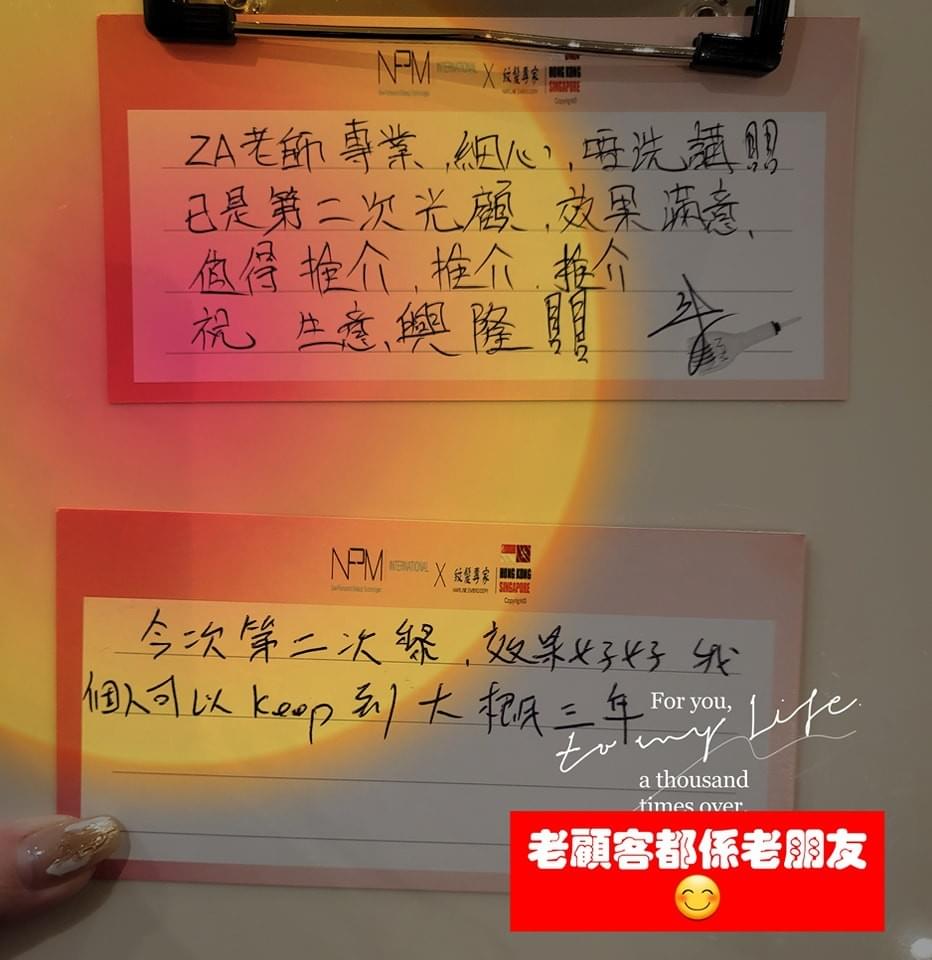 NPM INTERNATIONAL X 紋髮專家 HONG KONG SINGAPORE
Copyright©
ZA老師專業，細心，唔洗講!!!
已是第二次光顧，效果滿意、
值得推介，推介，推介
祝 生意興隆!!!
NPM INTERNATIONAL X 紋髮專家 HONG KONG SINGAPORE
Copyright©
今次第二次嚟，效果好好 我
個人可以 keep 到大概三年
For you,
to my Life
a thousand
times over.
老顧客都係老朋友
😊